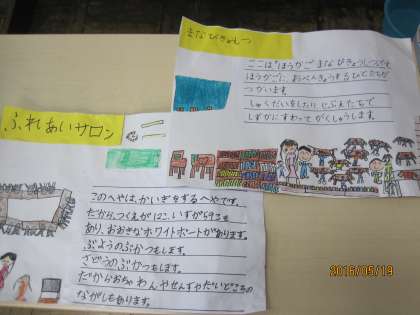 まなびきょしつ
ここは"ほうかごまなびきょうしつです
ほうかごに、おべんきょうするひとたちが
つかいます。
しゅくだいをしたり、じぶんたちで
しずかにすわってがくしゅうします。
ふれあいサロン
このへやは、かいぎをするへやです。
だから、つくえが12こ、いすが
あり、おおきなホワイトボードがあります。
ぶようのぶかつもします。
さどうのぶかつもします。
だからおちゃわんやせんすやだいどころの
ながしもあります。
2016/05/19